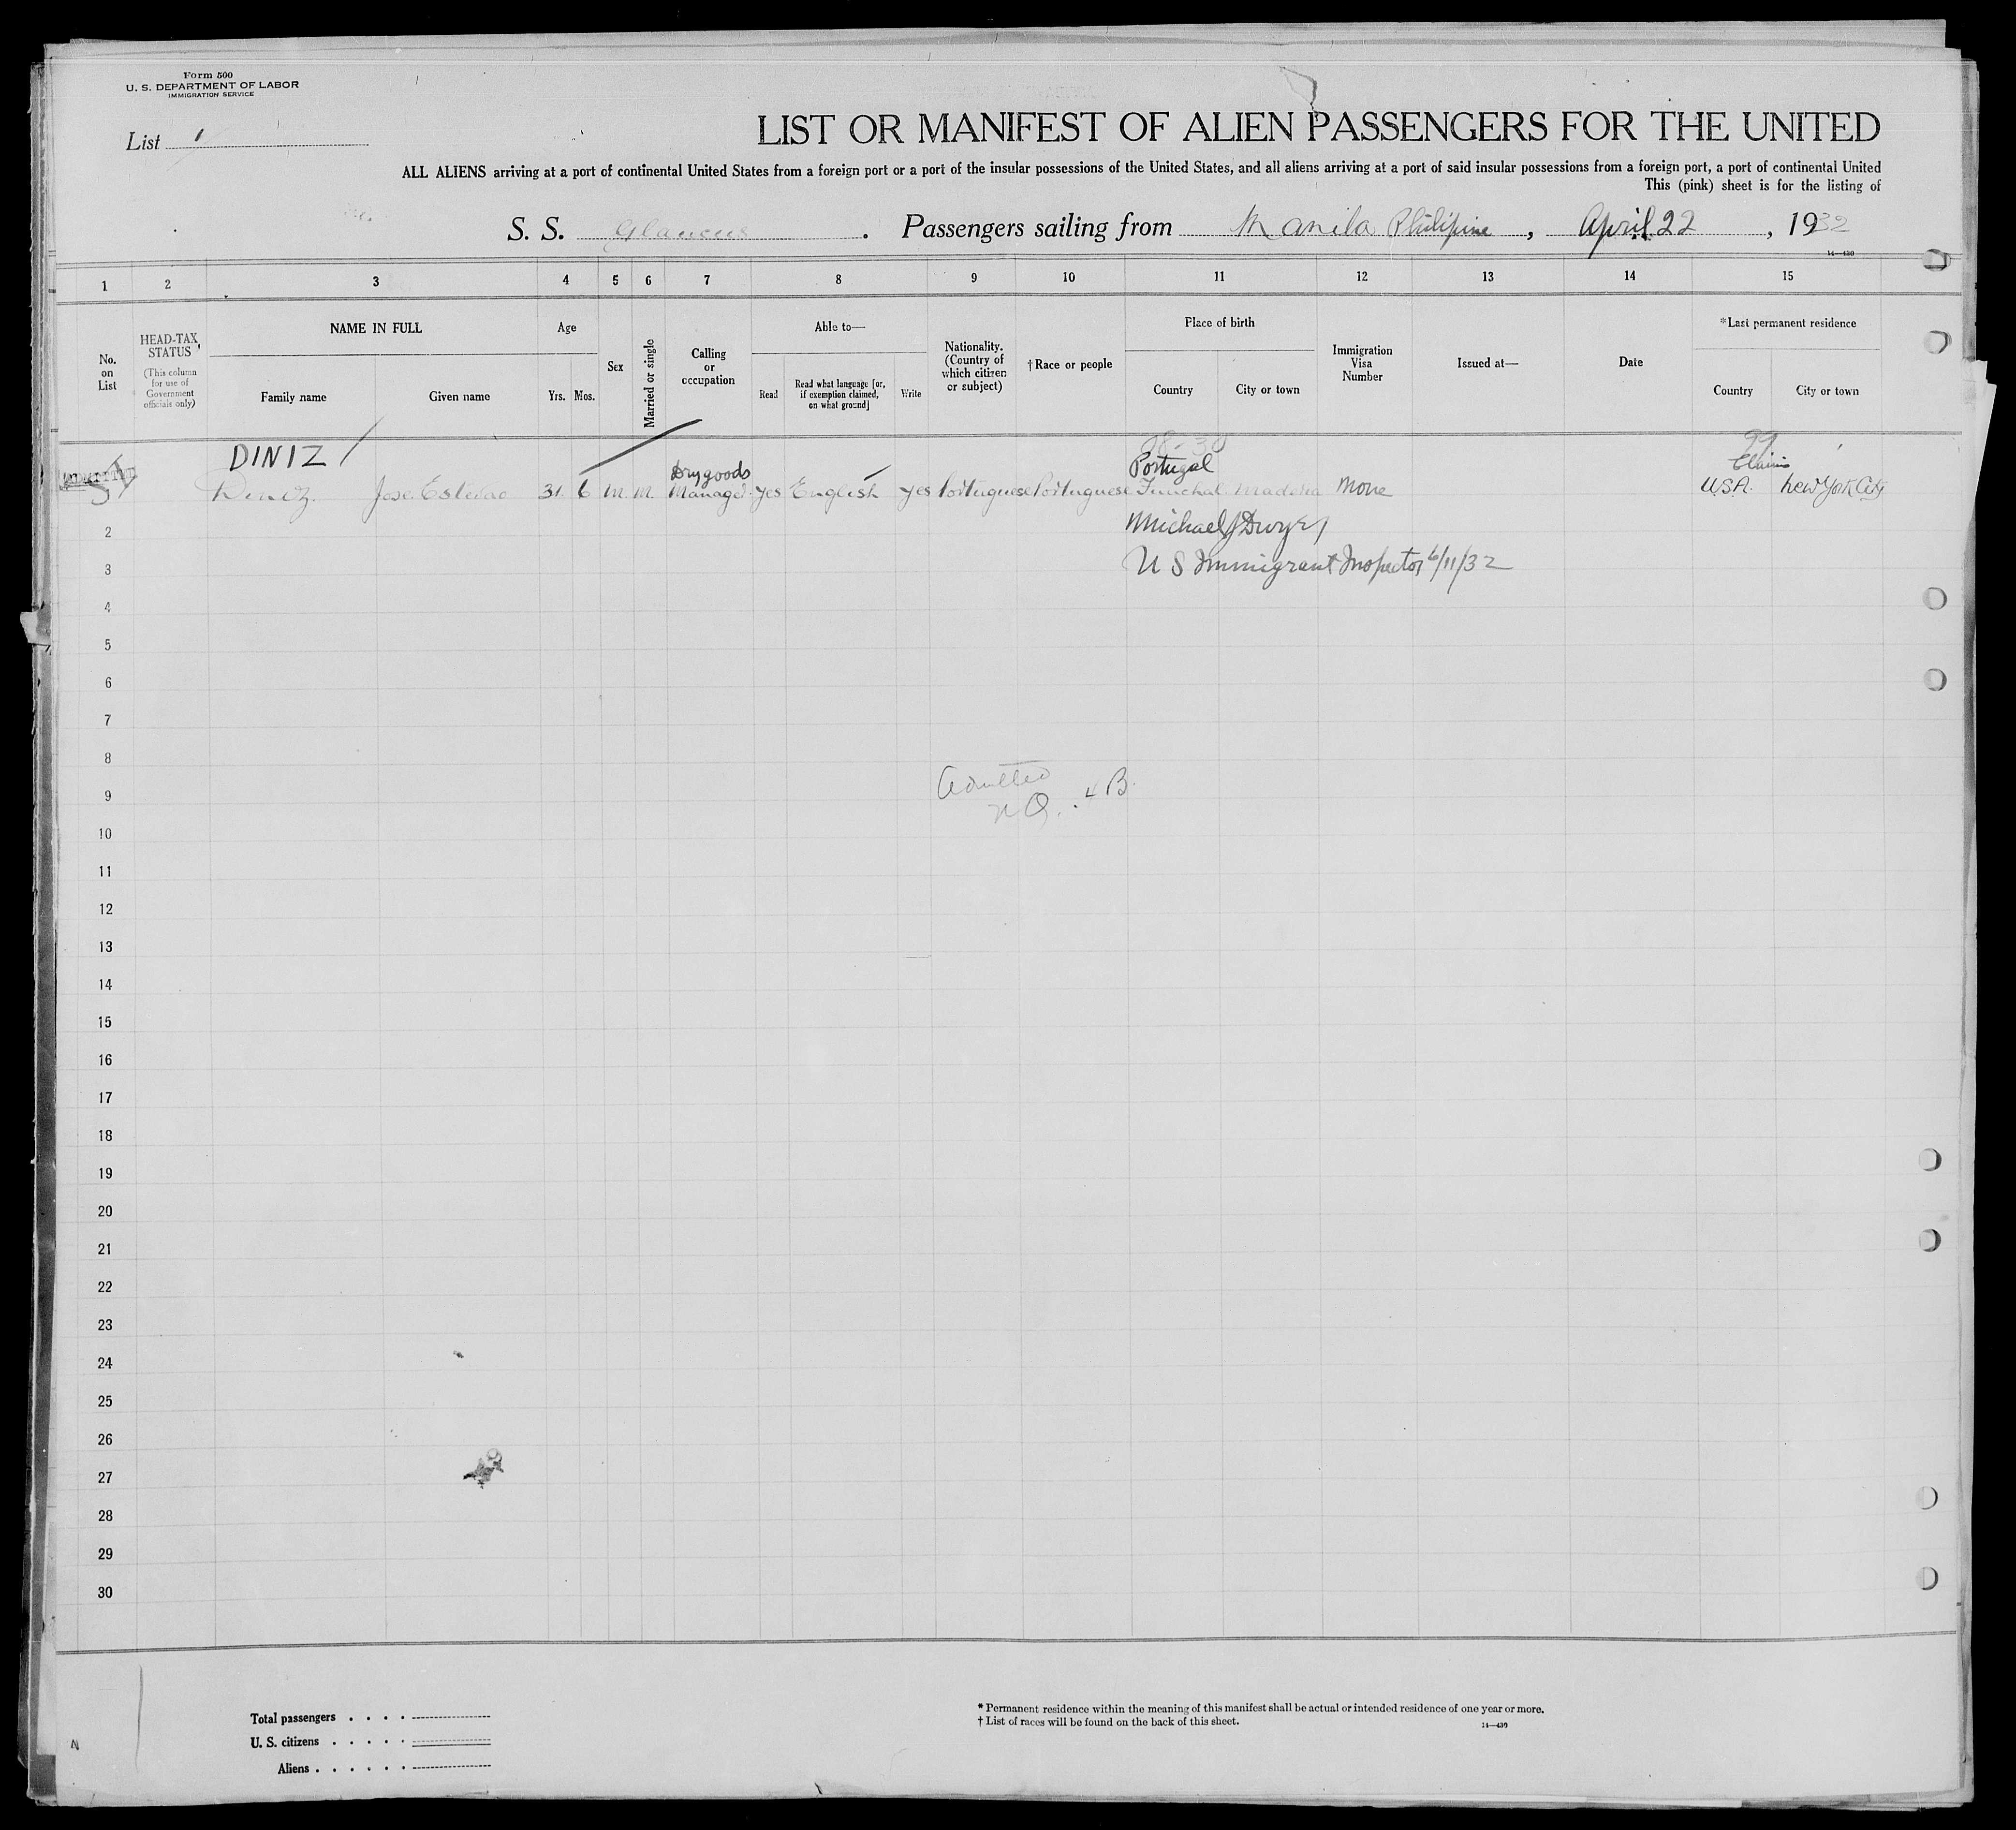 Form 500
U. S. DEPARTMENT OF LABOR
IMMIGRATION SERVICE
List 1
LIST OR MANIFEST OF ALIEN PASSENGERS FOR THE UNITED
ALL ALIENS arriving at a port of continental United States from a foreign port or a port of the insular possessions of the United States, and all aliens arriving at a port of said insular possessions from a foreign port, a port of continental United
This (pink) sheet is for the listing of
S. S. Glaucus. Passengers sailing from Manila Philipine, April 22, 1932
14—430
1 2 3 4 5 6 7 8 9 10 11 12 13 14 15
No. on List
HEAD-TAX STATUS
(This column for use of Government officials only)
NAME IN FULL
Family name Given name
Age
Yrs. Mos.
Sex
Married or single
Calling or occupation
Able to—
Read
Read what language [or, if exemption claimed, on what ground]
Write
Nationality. (Country of which citizen or subject)
†Race or people
Place of birth
Country City or town
Immigration Visa Number
Issued at—
Date
*Last permanent residence
Country City or town
DINIZ
Drygoods
Portugal
99
Claims
ADMITTED
Diniz Jose Estevao 31 6 M M Manager yes English yes Portuguese Portuguese Funchal Madeira None U.S.A. New York City
2 Michael J Dwyer
3 U S Immigrant Inspector 6/11/32
4
5
6
7
8
Admitted
9
N Q. 4 B.
10
11
12
13
14
15
16
17
18
19
20
21
22
23
24
25
26
27
28
29
30
Total passengers . . . .
U. S. citizens . . . . .
Aliens . . . . . .
* Permanent residence within the meaning of this manifest shall be actual or intended residence of one year or more.
† List of races will be found on the back of this sheet.
14—430